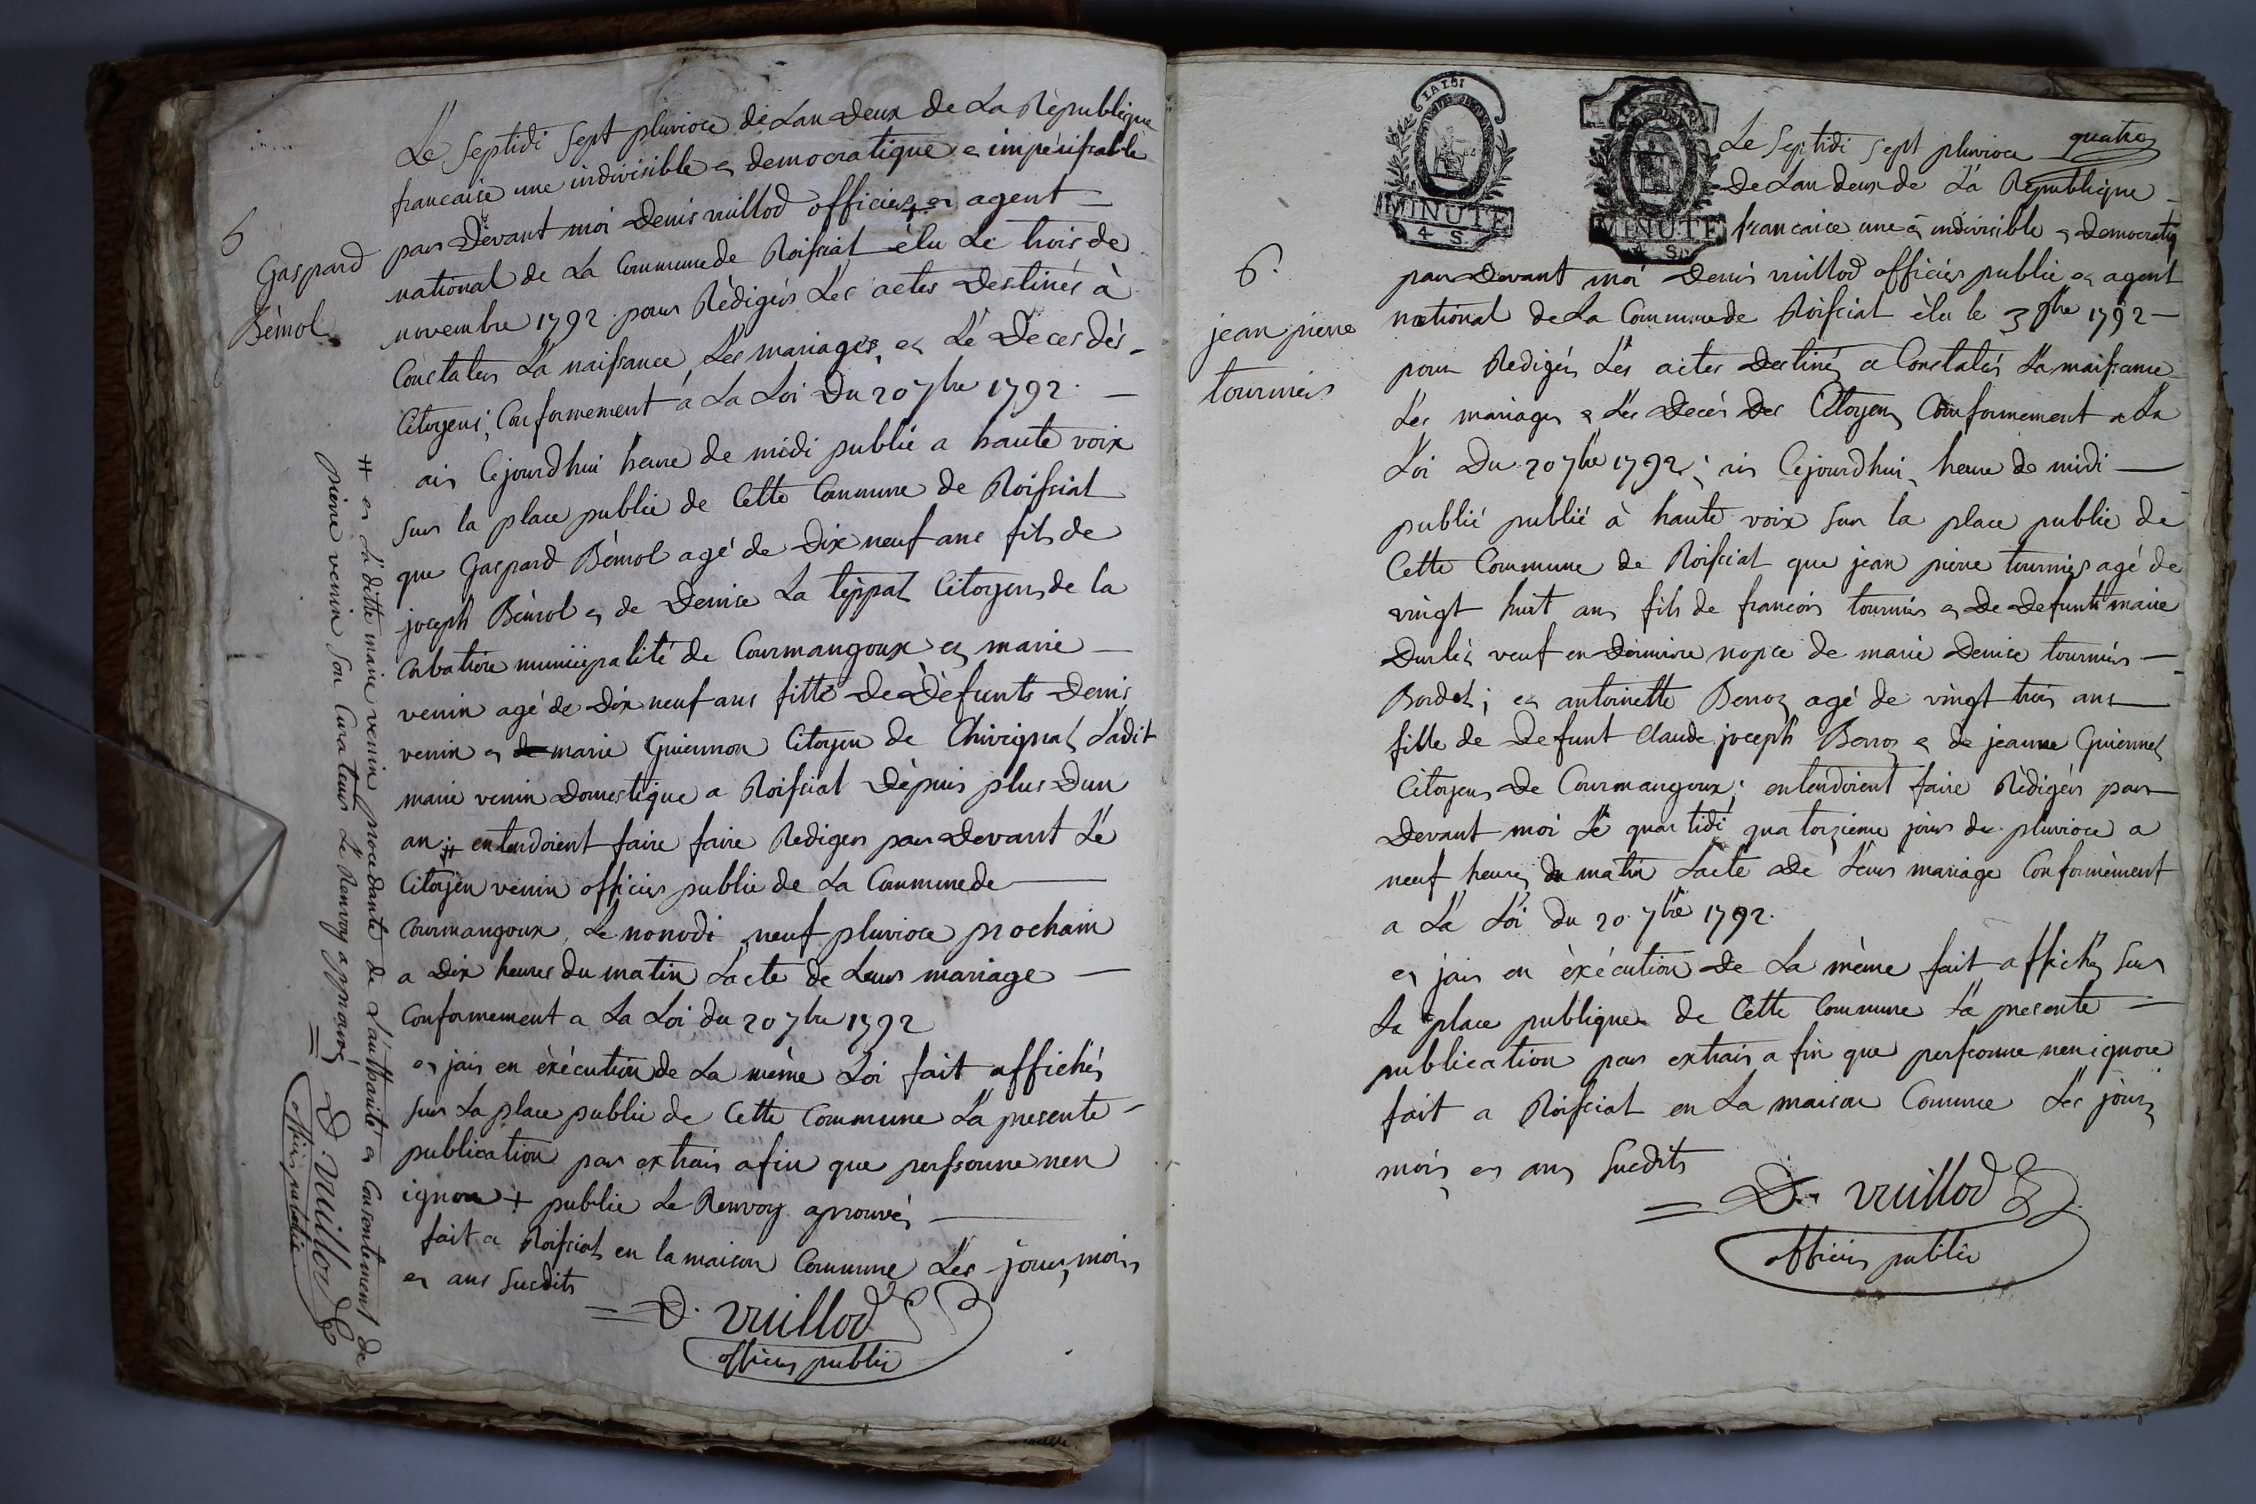 5
Gaspard
Bémol
Le Septidi Sept pluviose de Lan Deux de La Republique
francaise une indivisible et democratique et imperissable
par Dèvant moi Denis vuillod officier + et agent
national de La Commune de Roissiat élu Le trois de
novembre 1792 pour Rèdigés Les actes Destinés à
Constater La naissance, Les mariages, et Le Dèces dès
Citoyens; Conformement a La Loi Du 20 7bre 1792.
ais Cejourdhui heure de midi publié a haute voix
Sur la place public de Cette Commune de Roissiat
que Gaspard Bémol agé de Dix neuf ans fils de
joseph Bémol et de Denise La teppat Citoyens de la
Corbatière municipalité de Courmangoux et marie
venin agé de Dix neuf ans fille De Dèfunts Denis
venin et de marie Guiennon Citoyen de Chivignat Ladit
marie venin Domestique a Roissiat Dèpuis plus Dun
an # entendoient faire faire Rediger par Devant Le
Citoyen venin officier public de La Commune de
Courmangoux, Le nonodi neuf pluviose prochain
a Dix heures du matin Lacte de Leur mariage
Conformement a La Loi du 20 7bre 1792
et jais en èxécution de La même Loi fait affichés
Sur La place public de Cette Commune La presente
publication par extrais afin que perssonne nen
ignore + public Le Renvoy aprouvés
fait a Roissiat en la maison Commune Les jour, mois
et ans Susdits
= D. vuillod
officier public
# et Ladite marie venin procedante de L'authorité et Consentement de
pierre venin Son Curateur Le Renvoy approuvés
= D. vuillod
officier public
quatre
LA LOI
MINUTE
4 S
MINUTE
4 S
6.
jean pierre
tournier
Le Septidi Sept pluviose
De Lan deux de La Republique
francaice une et indivisible et Democratiq
par Devant moi Denis vuillod officier public et agent
national de La Commune de Roissiat èlu le 3 9bre 1792
pour Redigér Les actes Destinés a Constatés La naissance
Les mariages et Les Decés Des Citoyens Conformement a La
Loi Du 20 7bre 1792; ais Cejourdhui, heure de midi
publié publié à haute voix Sur la place public de
Cette Commune de Roissiat que jean pierre tournier agé de
vingt huit ans fils de francois tournier et De Defunte marie
Durlès veuf en Derniere nopce de marie Denise tournier
Bordet; et antoinette Benoz agé de vingt trois ans
fille de Defunt Claude joseph Benoz et de jeanne Guiennet
Citoyens De Courmangoux; entendoient faire Rèdigér par
Devant moi Le quartidi quatorzieme jour de pluviose a
neuf heures du matin Lacte De Leur mariage Conformèment
a La Loi du 20 7bre 1792.
et jais en èxécution de La même fait affichér Sur
La place publique de Cette Commune La presente
publication par extrais a fin que perssonne nen ignore
fait a Roissiat en La maison Commune Les jour,
mois et ans Susdits
= D. vuillod
officier public